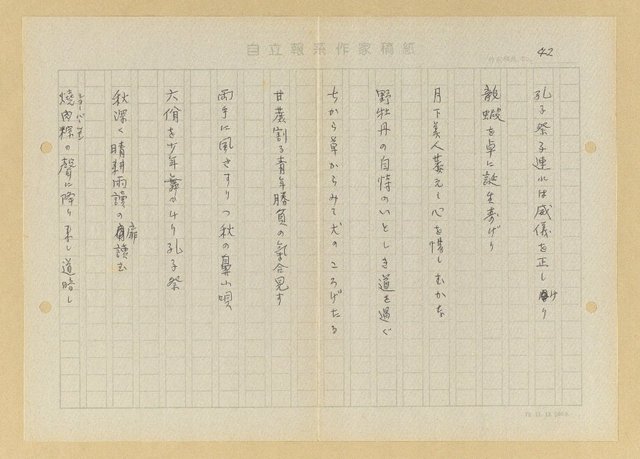 自立報系作家稿紙
42
孔子祭孑連れは威儀を正しけり
龍蝦を卓に誕生寿げり
月下美人萎えて心を惜しむかな
野牡丹の自恃のいとしき道を過ぐ
ちから草からみて犬のころげたる
甘蔗割る青年勝負の気合見す
両手に風さすりつ秋の鼻山唄
六佾を少年舞ひけり孔子祭
秋深く晴耕雨讀の扉讀む
焼肉粽の聲に降り来し道暗し